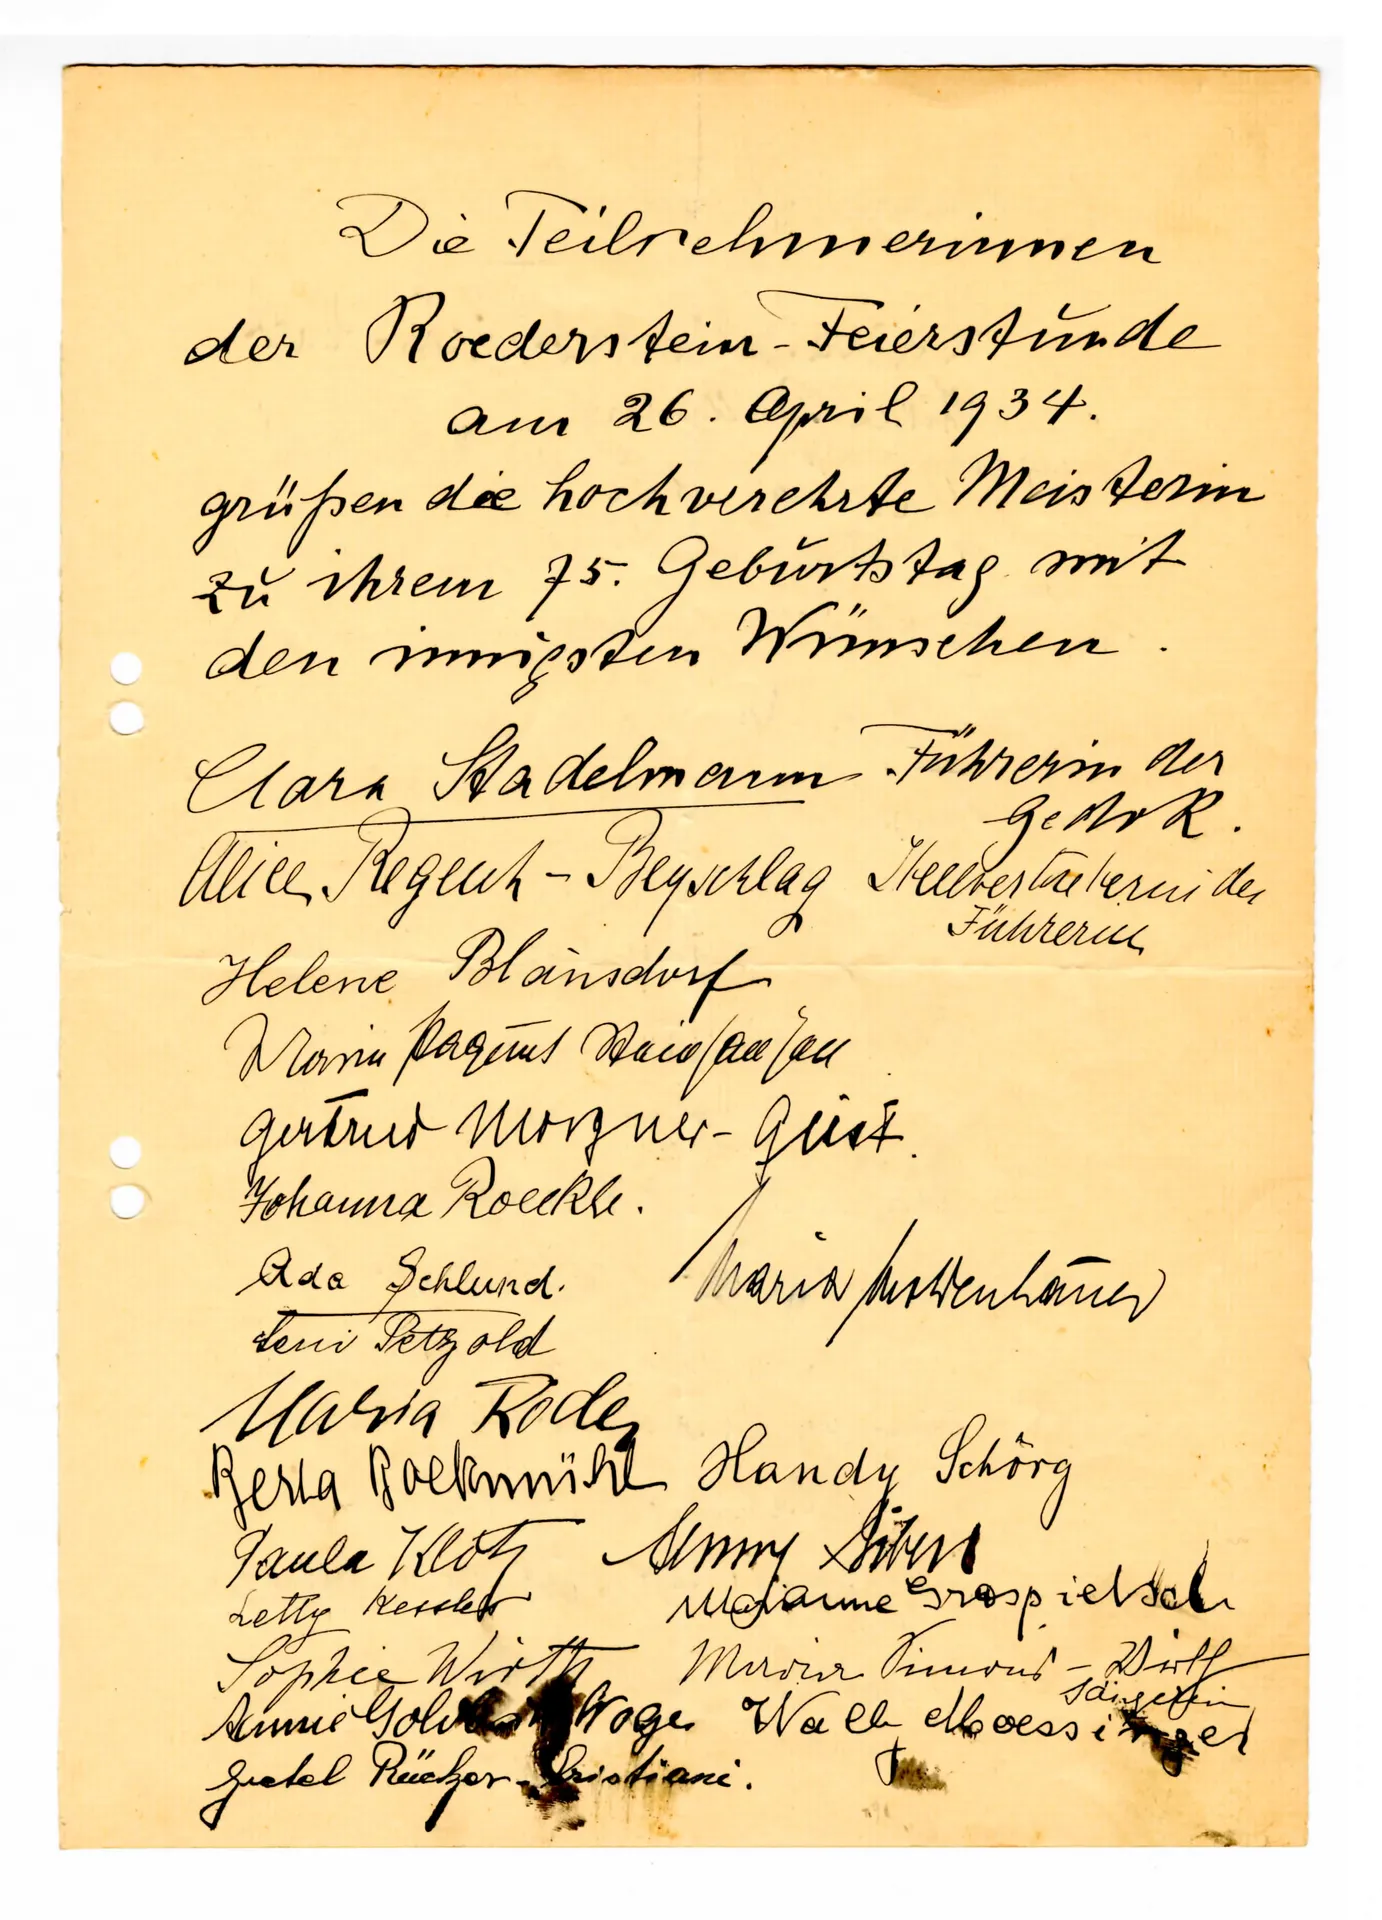 Die Teilnehmerinnen
der Roederstein-Feierstunde
am 26. April 1934.
grüßen die hochverehrte Meisterin
zu ihrem 75. Geburtstag mit
den innigsten Wünschen.
Clara Stadelmann Führerin der
Gedok.
Alice Regeuh-Beyschlag Stellvertreterin der
Führerin
Helene Blänsdorf
Maria
Gertrud Geist.
Johanna Roeckle.
Ada Schlund.
Maria Moldenhauer
Leni Petzold
Maria Rode
Berta Bockmühl Handy Schörg
Paula Klotz Jenny
Letty Kessler Marianne Grospietsch
Sophie Wirth Maria Simons-Wolf
Sängerin
Annie Woge Wally Moessinger
Gretel Rücker-Cristiani.